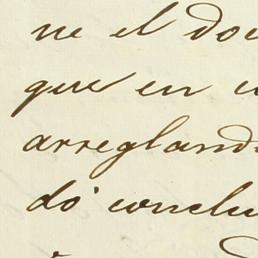 ne el do
que en
arregland
do' conclu